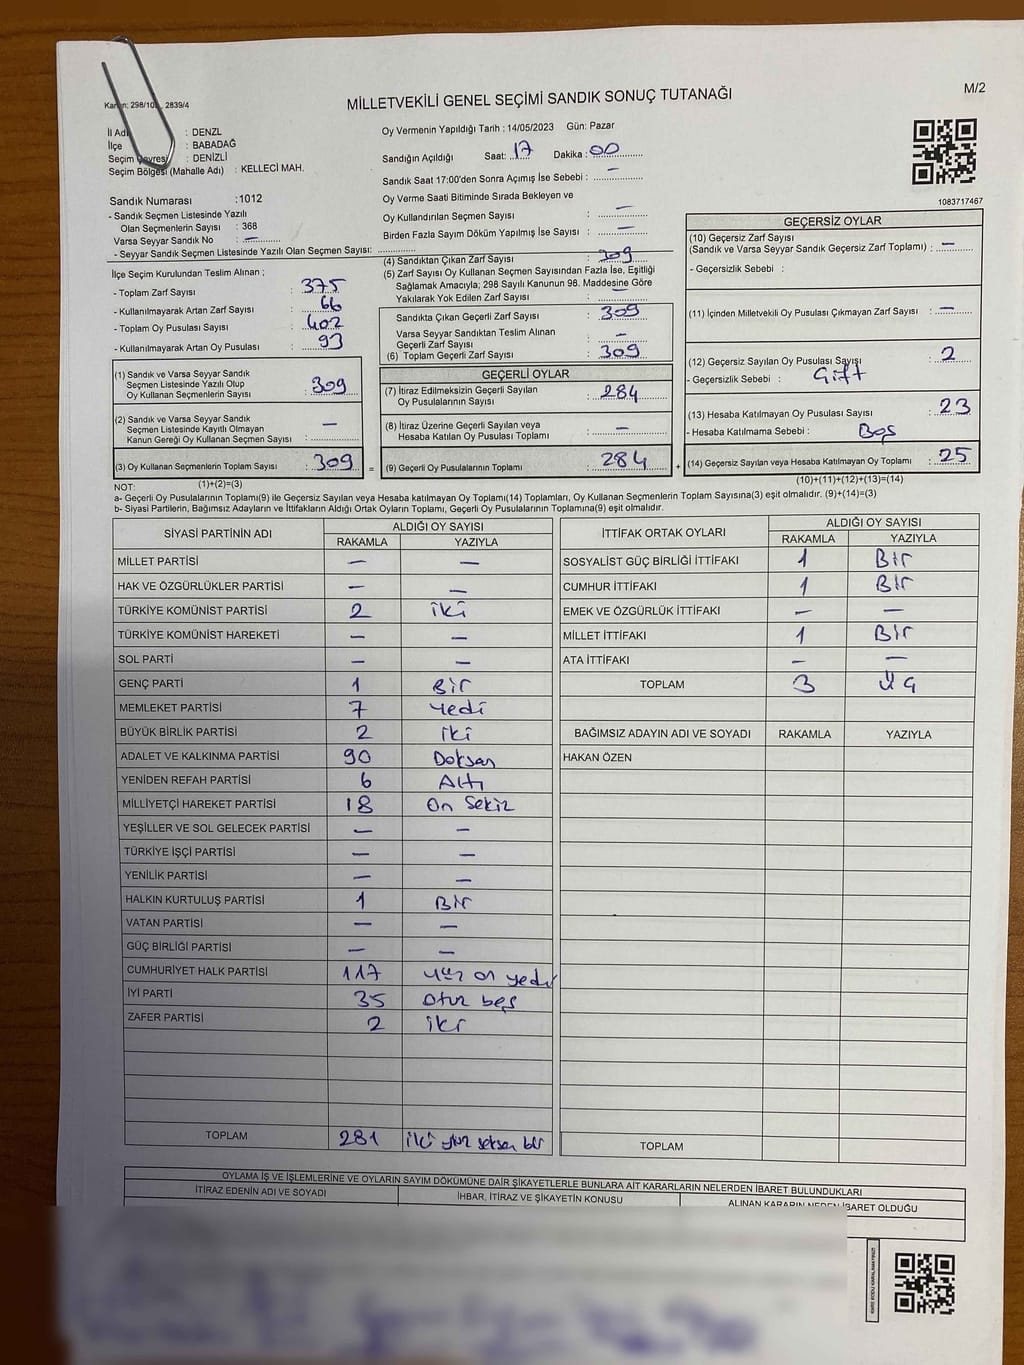 Kanun; 298/10 , 2839/4
MİLLETVEKİLİ GENEL SEÇİMİ SANDIK SONUÇ TUTANAĞI
M/2
İl Adı : DENZL
İlçe : BABADAĞ
Seçim Çevresi : DENİZLİ
Seçim Bölgesi (Mahalle Adı) : KELLECİ MAH.
Oy Vermenin Yapıldığı Tarih : 14/05/2023 Gün: Pazar
Sandığın Açıldığı Saat: 17 Dakika : 00
Sandık Saat 17:00'den Sonra Açımış İse Sebebi : —
Oy Verme Saati Bitiminde Sırada Bekleyen ve
Oy Kullandırılan Seçmen Sayısı : —
Birden Fazla Sayım Döküm Yapılmış İse Sayısı : —
1083717467
Sandık Numarası :1012
- Sandık Seçmen Listesinde Yazılı
Olan Seçmenlerin Sayısı : 368
Varsa Seyyar Sandık No : —
- Seyyar Sandık Seçmen Listesinde Yazılı Olan Seçmen Sayısı:
İlçe Seçim Kurulundan Teslim Alınan ;
- Toplam Zarf Sayısı : 375
- Kullanılmayarak Artan Zarf Sayısı : 66
- Toplam Oy Pusulası Sayısı : 402
- Kullanılmayarak Artan Oy Pusulası : 93
(1) Sandık ve Varsa Seyyar Sandık
Seçmen Listesinde Yazılı Olup
Oy Kullanan Seçmenlerin Sayısı : 309
(2) Sandık ve Varsa Seyyar Sandık
Seçmen Listesinde Kayıtlı Olmayan
Kanun Gereği Oy Kullanan Seçmen Sayısı : —
(3) Oy Kullanan Seçmenlerin Toplam Sayısı : 309 =
(1)+(2)=(3)
(4) Sandıktan Çıkan Zarf Sayısı : 309
(5) Zarf Sayısı Oy Kullanan Seçmen Sayısından Fazla İse, Eşitliği
Sağlamak Amacıyla; 298 Sayılı Kanunun 98. Maddesine Göre
Yakılarak Yok Edilen Zarf Sayısı : —
Sandıkta Çıkan Geçerli Zarf Sayısı : 309
Varsa Seyyar Sandıktan Teslim Alınan
Geçerli Zarf Sayısı : —
(6) Toplam Geçerli Zarf Sayısı : 309
GEÇERLİ OYLAR
(7) İtiraz Edilmeksizin Geçerli Sayılan
Oy Pusulalarının Sayısı : 284
(8) İtiraz Üzerine Geçerli Sayılan veya
Hesaba Katılan Oy Pusulası Toplamı : —
(9) Geçerli Oy Pusulalarının Toplamı : 284 +
GEÇERSİZ OYLAR
(10) Geçersiz Zarf Sayısı
(Sandık ve Varsa Seyyar Sandık Geçersiz Zarf Toplamı) : —
- Geçersizlik Sebebi :
(11) İçinden Milletvekili Oy Pusulası Çıkmayan Zarf Sayısı : —
(12) Geçersiz Sayılan Oy Pusulası Sayısı : 2
- Geçersizlik Sebebi : Çift
(13) Hesaba Katılmayan Oy Pusulası Sayısı : 23
- Hesaba Katılmama Sebebi : Boş
(14) Geçersiz Sayılan veya Hesaba Katılmayan Oy Toplamı : 25
(10)+(11)+(12)+(13)=(14)
NOT:
a- Geçerli Oy Pusulalarının Toplamı(9) ile Geçersiz Sayılan veya Hesaba katılmayan Oy Toplamı(14) Toplamları, Oy Kullanan Seçmenlerin Toplam Sayısına(3) eşit olmalıdır. (9)+(14)=(3)
b- Siyasi Partilerin, Bağımsız Adayların ve İttifakların Aldığı Ortak Oyların Toplamı, Geçerli Oy Pusulalarının Toplamına(9) eşit olmalıdır.
SİYASİ PARTİNİN ADI ALDIĞI OY SAYISI
RAKAMLA YAZIYLA
MİLLET PARTİSİ — —
HAK VE ÖZGÜRLÜKLER PARTİSİ — —
TÜRKİYE KOMÜNİST PARTİSİ 2 iki
TÜRKİYE KOMÜNİST HAREKETİ — —
SOL PARTİ — —
GENÇ PARTİ 1 Bir
MEMLEKET PARTİSİ 7 Yedi
BÜYÜK BİRLİK PARTİSİ 2 iki
ADALET VE KALKINMA PARTİSİ 90 Doksan
YENİDEN REFAH PARTİSİ 6 Altı
MİLLİYETÇİ HAREKET PARTİSİ 18 On Sekiz
YEŞİLLER VE SOL GELECEK PARTİSİ — —
TÜRKİYE İŞÇİ PARTİSİ — —
YENİLİK PARTİSİ — —
HALKIN KURTULUŞ PARTİSİ 1 Bir
VATAN PARTİSİ — —
GÜÇ BİRLİĞİ PARTİSİ — —
CUMHURİYET HALK PARTİSİ 117 yüz on yedi
İYİ PARTİ 35 otuz beş
ZAFER PARTİSİ 2 iki
TOPLAM 281 iki yüz seksen bir
İTTİFAK ORTAK OYLARI ALDIĞI OY SAYISI
RAKAMLA YAZIYLA
SOSYALİST GÜÇ BİRLİĞİ İTTİFAKI 1 Bir
CUMHUR İTTİFAKI 1 Bir
EMEK VE ÖZGÜRLÜK İTTİFAKI — —
MİLLET İTTİFAKI 1 Bir
ATA İTTİFAKI — —
TOPLAM 3 Üç
BAĞIMSIZ ADAYIN ADI VE SOYADI RAKAMLA YAZIYLA
HAKAN ÖZEN
TOPLAM
OYLAMA İŞ VE İŞLEMLERİNE VE OYLARIN SAYIM DÖKÜMÜNE DAİR ŞİKAYETLERLE BUNLARA AİT KARARLARIN NELERDEN İBARET BULUNDUKLARI
İTİRAZ EDENİN ADI VE SOYADI İHBAR, İTİRAZ VE ŞİKAYETİN KONUSU ALINAN KARARIN NEDEN İBARET OLDUĞU